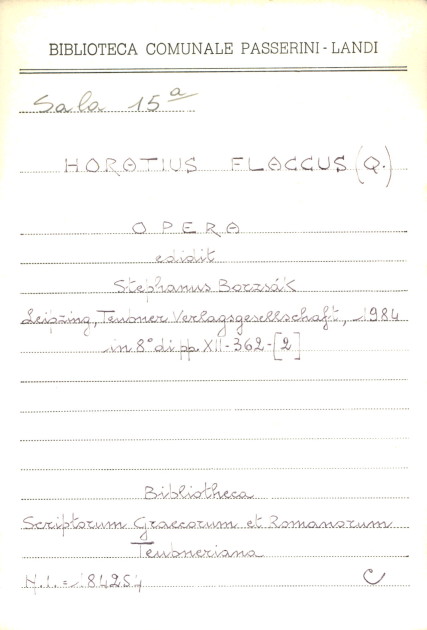 BIBLIOTECA COMUNALE PASSERINI - LANDI
Sala 15ª
HORATIUS FLACCUS (Q.)
OPERA
edidit
Stephanus Borzsák
Leipzing, Teubner Verlagsgesellschaft, 1984
in 8° di pp. XII-362-[2]
Bibliotheca
Scriptorum Graecorum et Romanorum
Teubneriana
N.i. = 84254
C